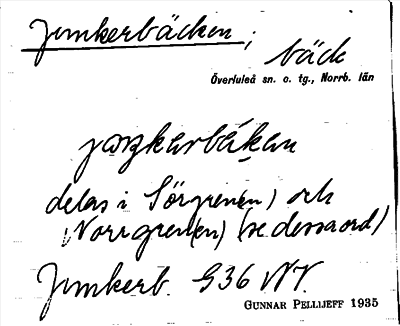 Junkerbäcken;
bäck
Överluleå sn. o. tg., Norrb. län
delas i Sörgrenen) och
Norrgren(en) (se dessa ord)
Junkerb. G36 NV
GUNNAR PELLIJEFF 1935